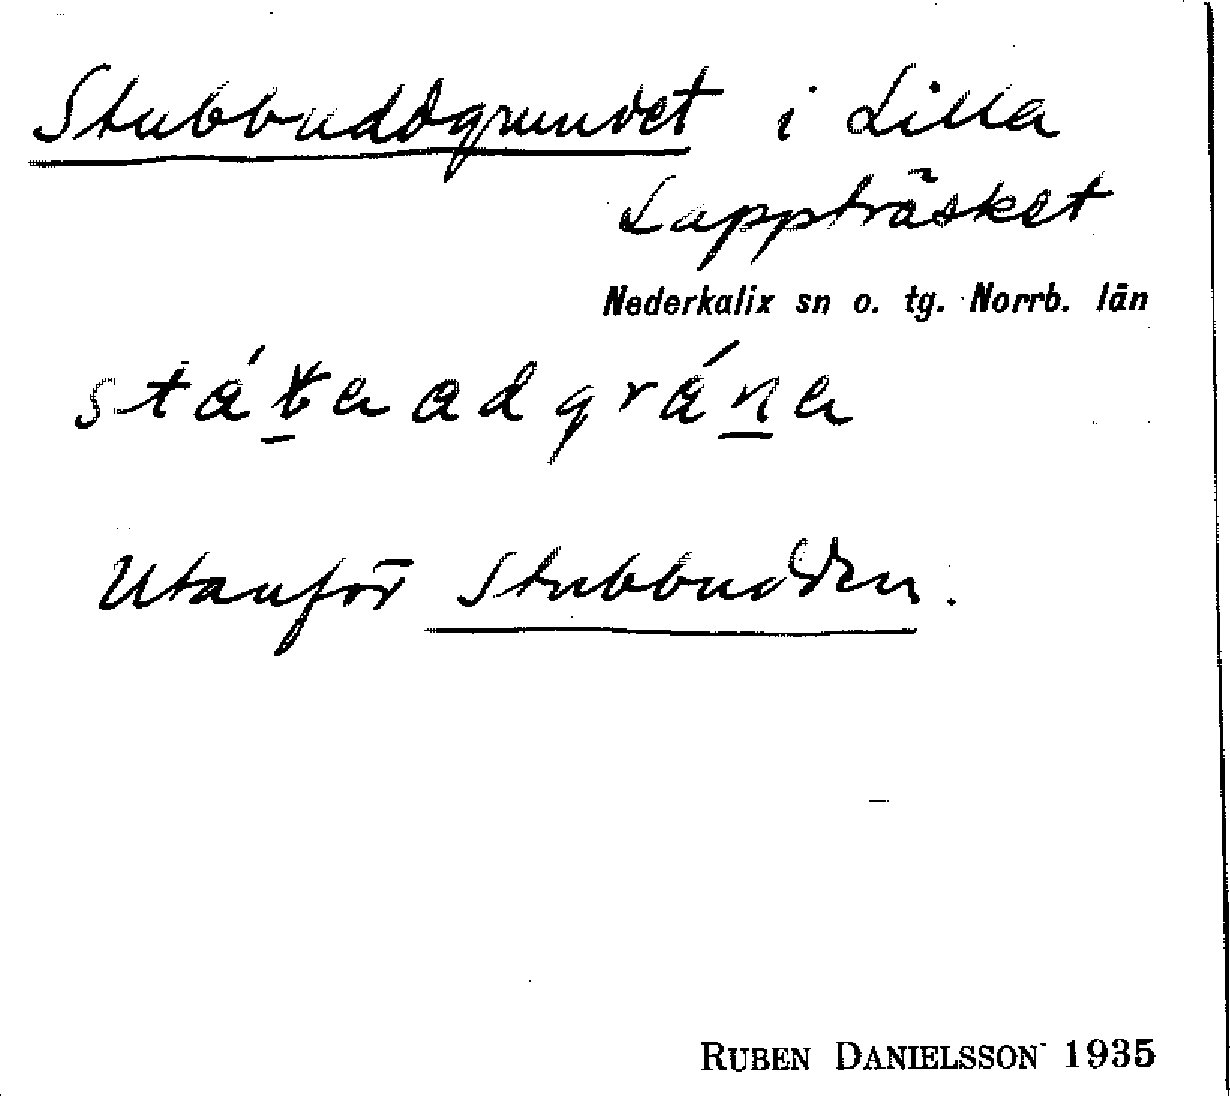 Stubbuddgrundet i Lilla
Lappträsket
Nederkalix sn o. tg. Norrb. län
Utanför Stubbudden.
RUBEN DANIELSSON 1935